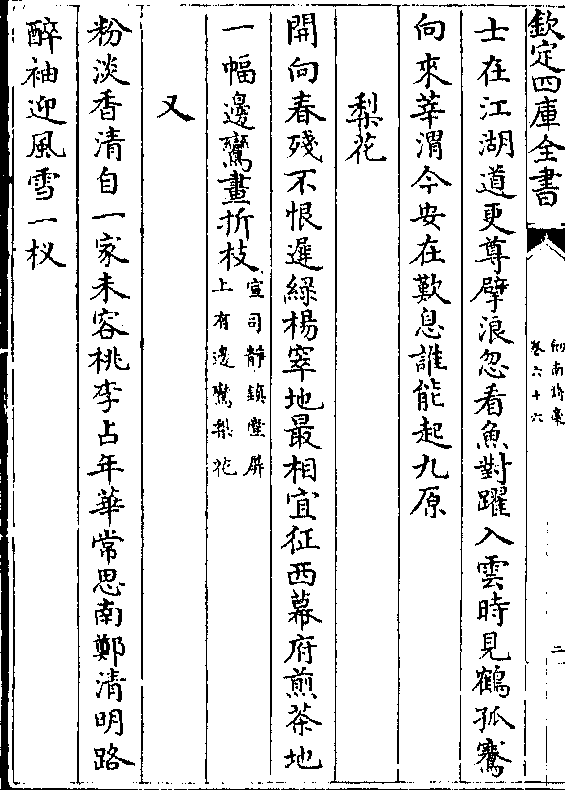 欽定四庫全書
劍南詩稾
卷六十六
二
士在江湖道更尊擘浪忽看魚對躍入雲時見鶴孤騫
向來莘渭今安在歎息誰能起九原
梨花
開向春殘不恨遲綠楊窣地最相宜征西幕府煎茶地
一幅邊鸞畫折枝
宣司靜鎮堂屏
上有邊鸞梨花
又
粉淡香清自一家未容桃李占年華常思南鄭清明路
醉袖迎風雪一杈